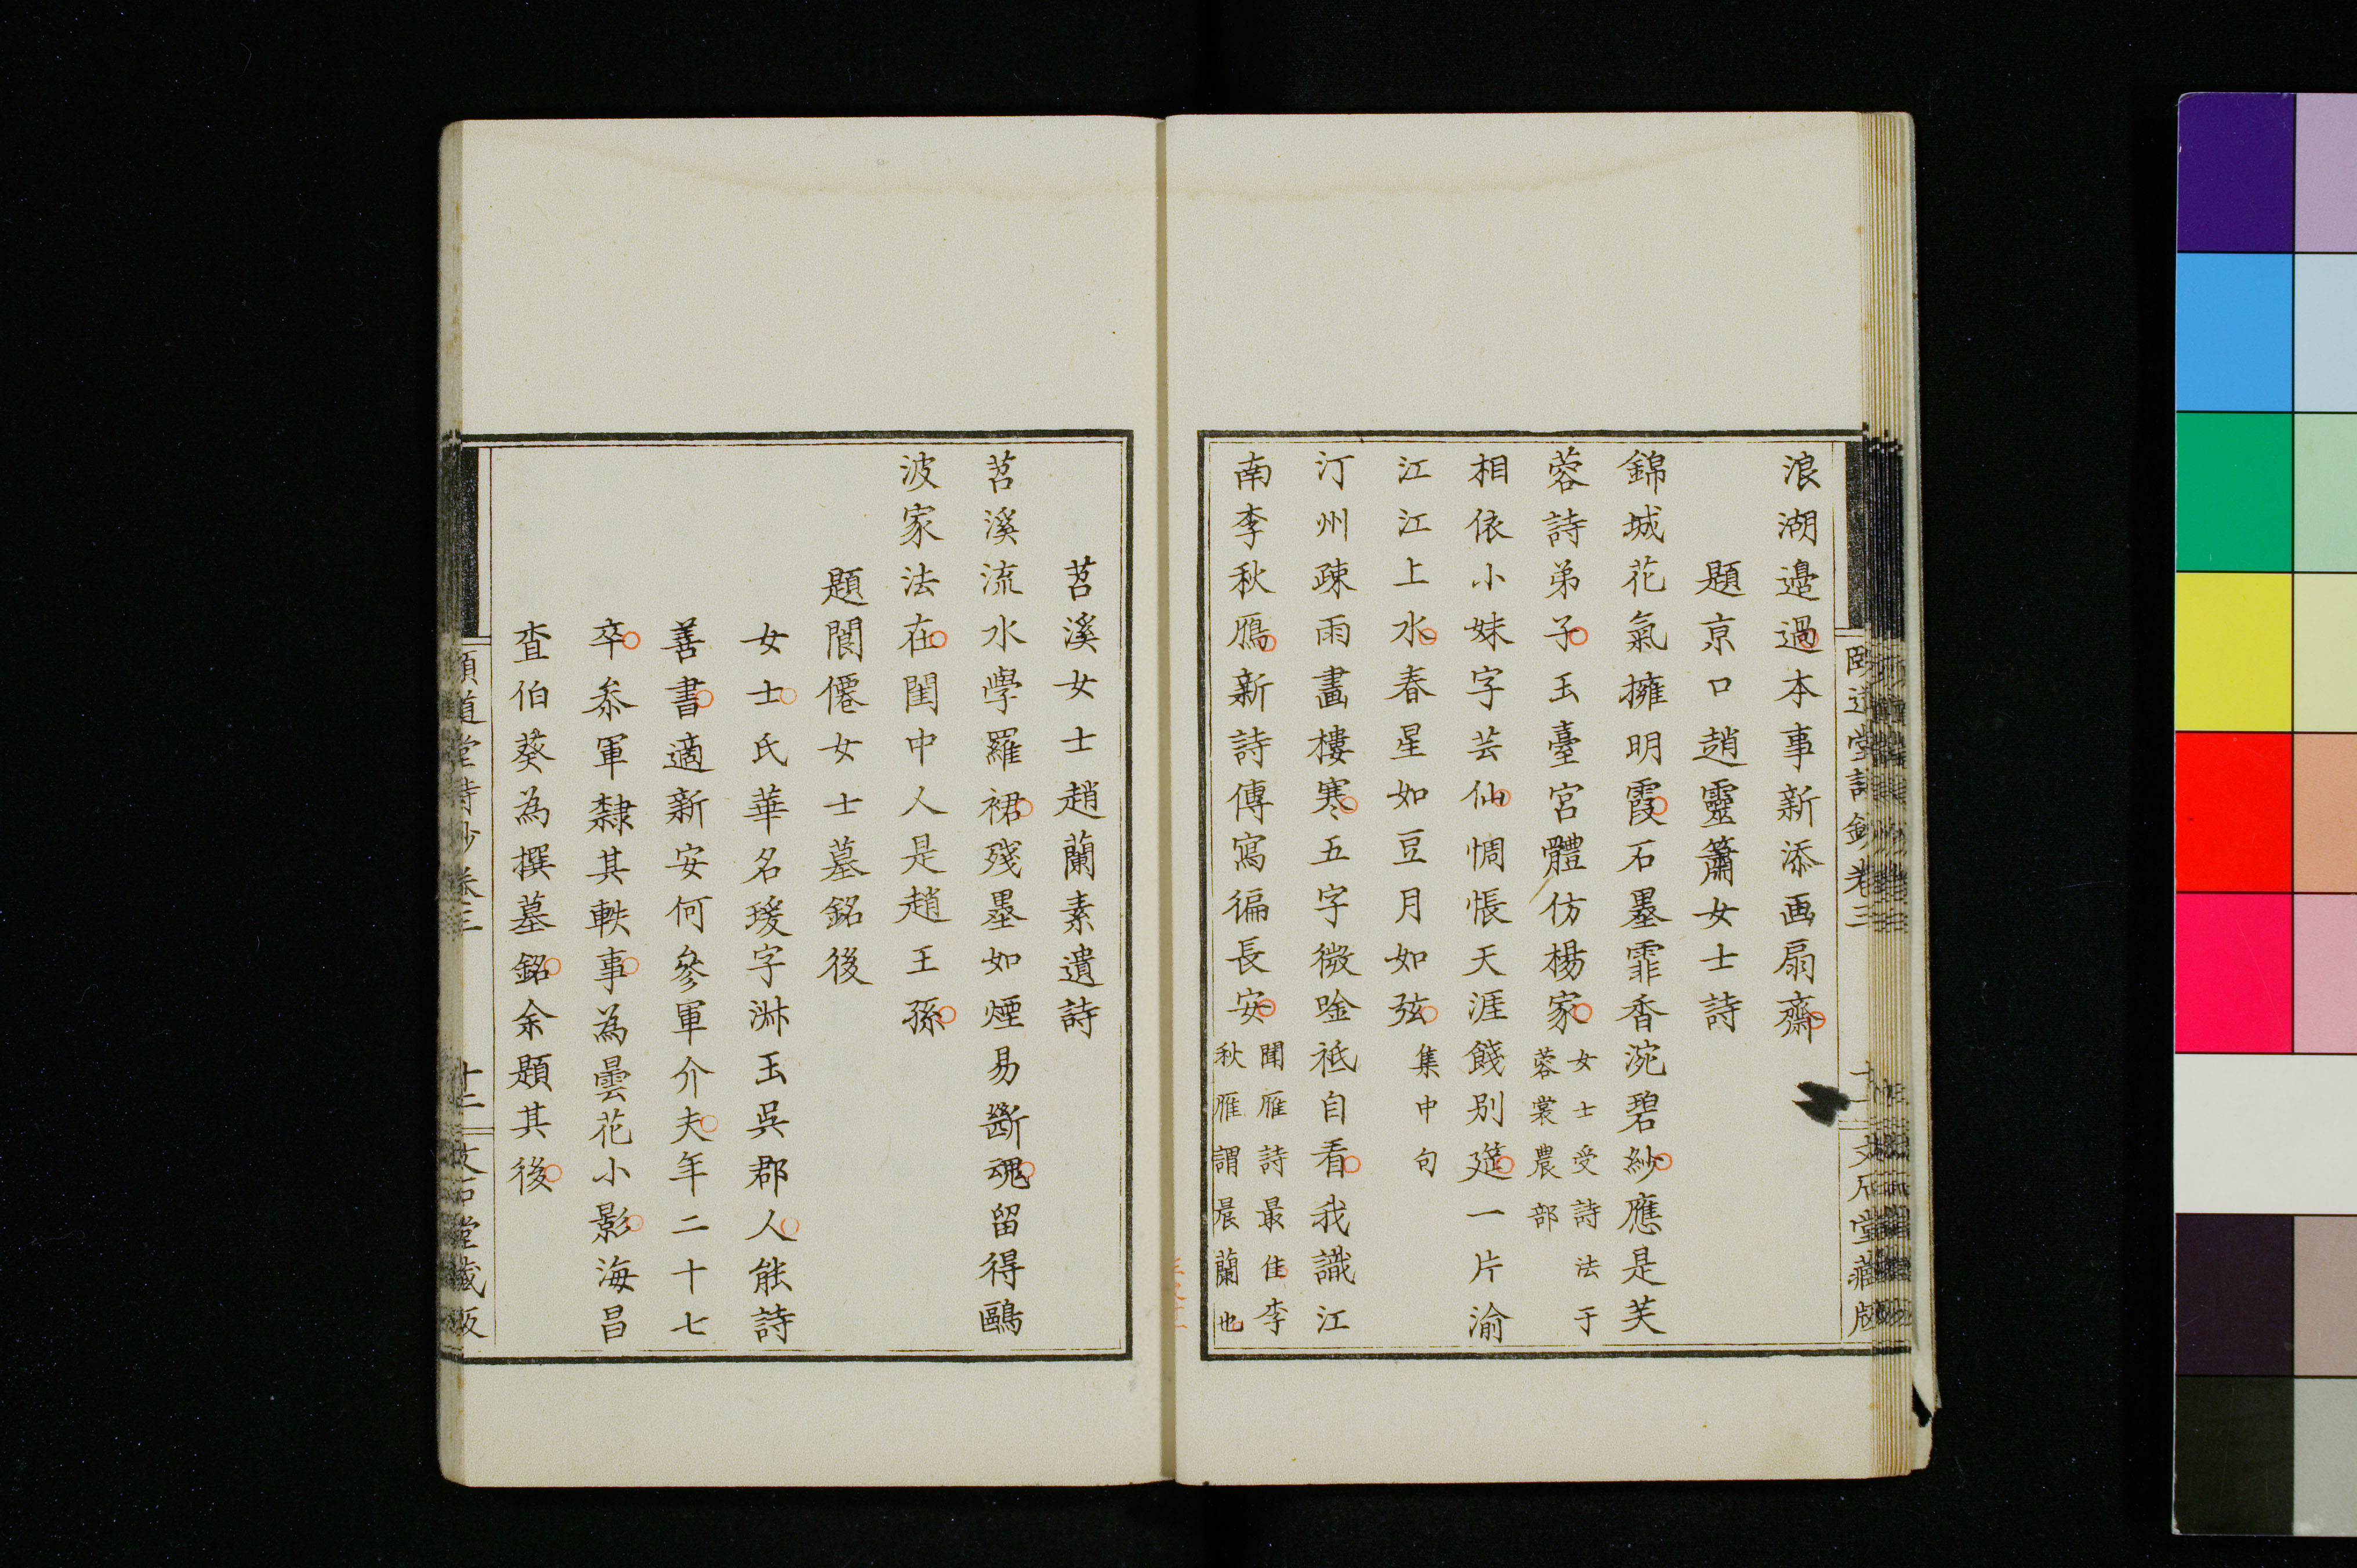 浪湖邉過本事新添画扇齋
題京口趙靈簫女士詩
錦城花氣擁明霞石墨霏香涴碧紗應是芙
蓉詩弟子玉臺宮體仿楊家女士受詩法于
蓉裳農部
相依小妹字芸仙惆悵天涯餞别筵一片渝
江江上水春星如豆月如弦集中句
汀州疎雨畫樓寒五字微唫祗自看我識江
南李秋鴈新詩傳寫徧長安聞雁詩最佳李
秋雁謂晨蘭也
苕溪女士趙蘭素遺詩
苕溪流水學羅裙殘墨如煙易斷魂留得鷗
波家法在閨中人是趙王孫
題閬僊女士墓銘後
女士氏華名瑗字淋玉吳郡人能詩
善書適新安何參軍介夫年二十七
卒叅軍隸其軼事為曇花小影海昌
查伯葵為撰墓銘余題其後
頤道堂詩鈔卷三 十二 文石堂藏版